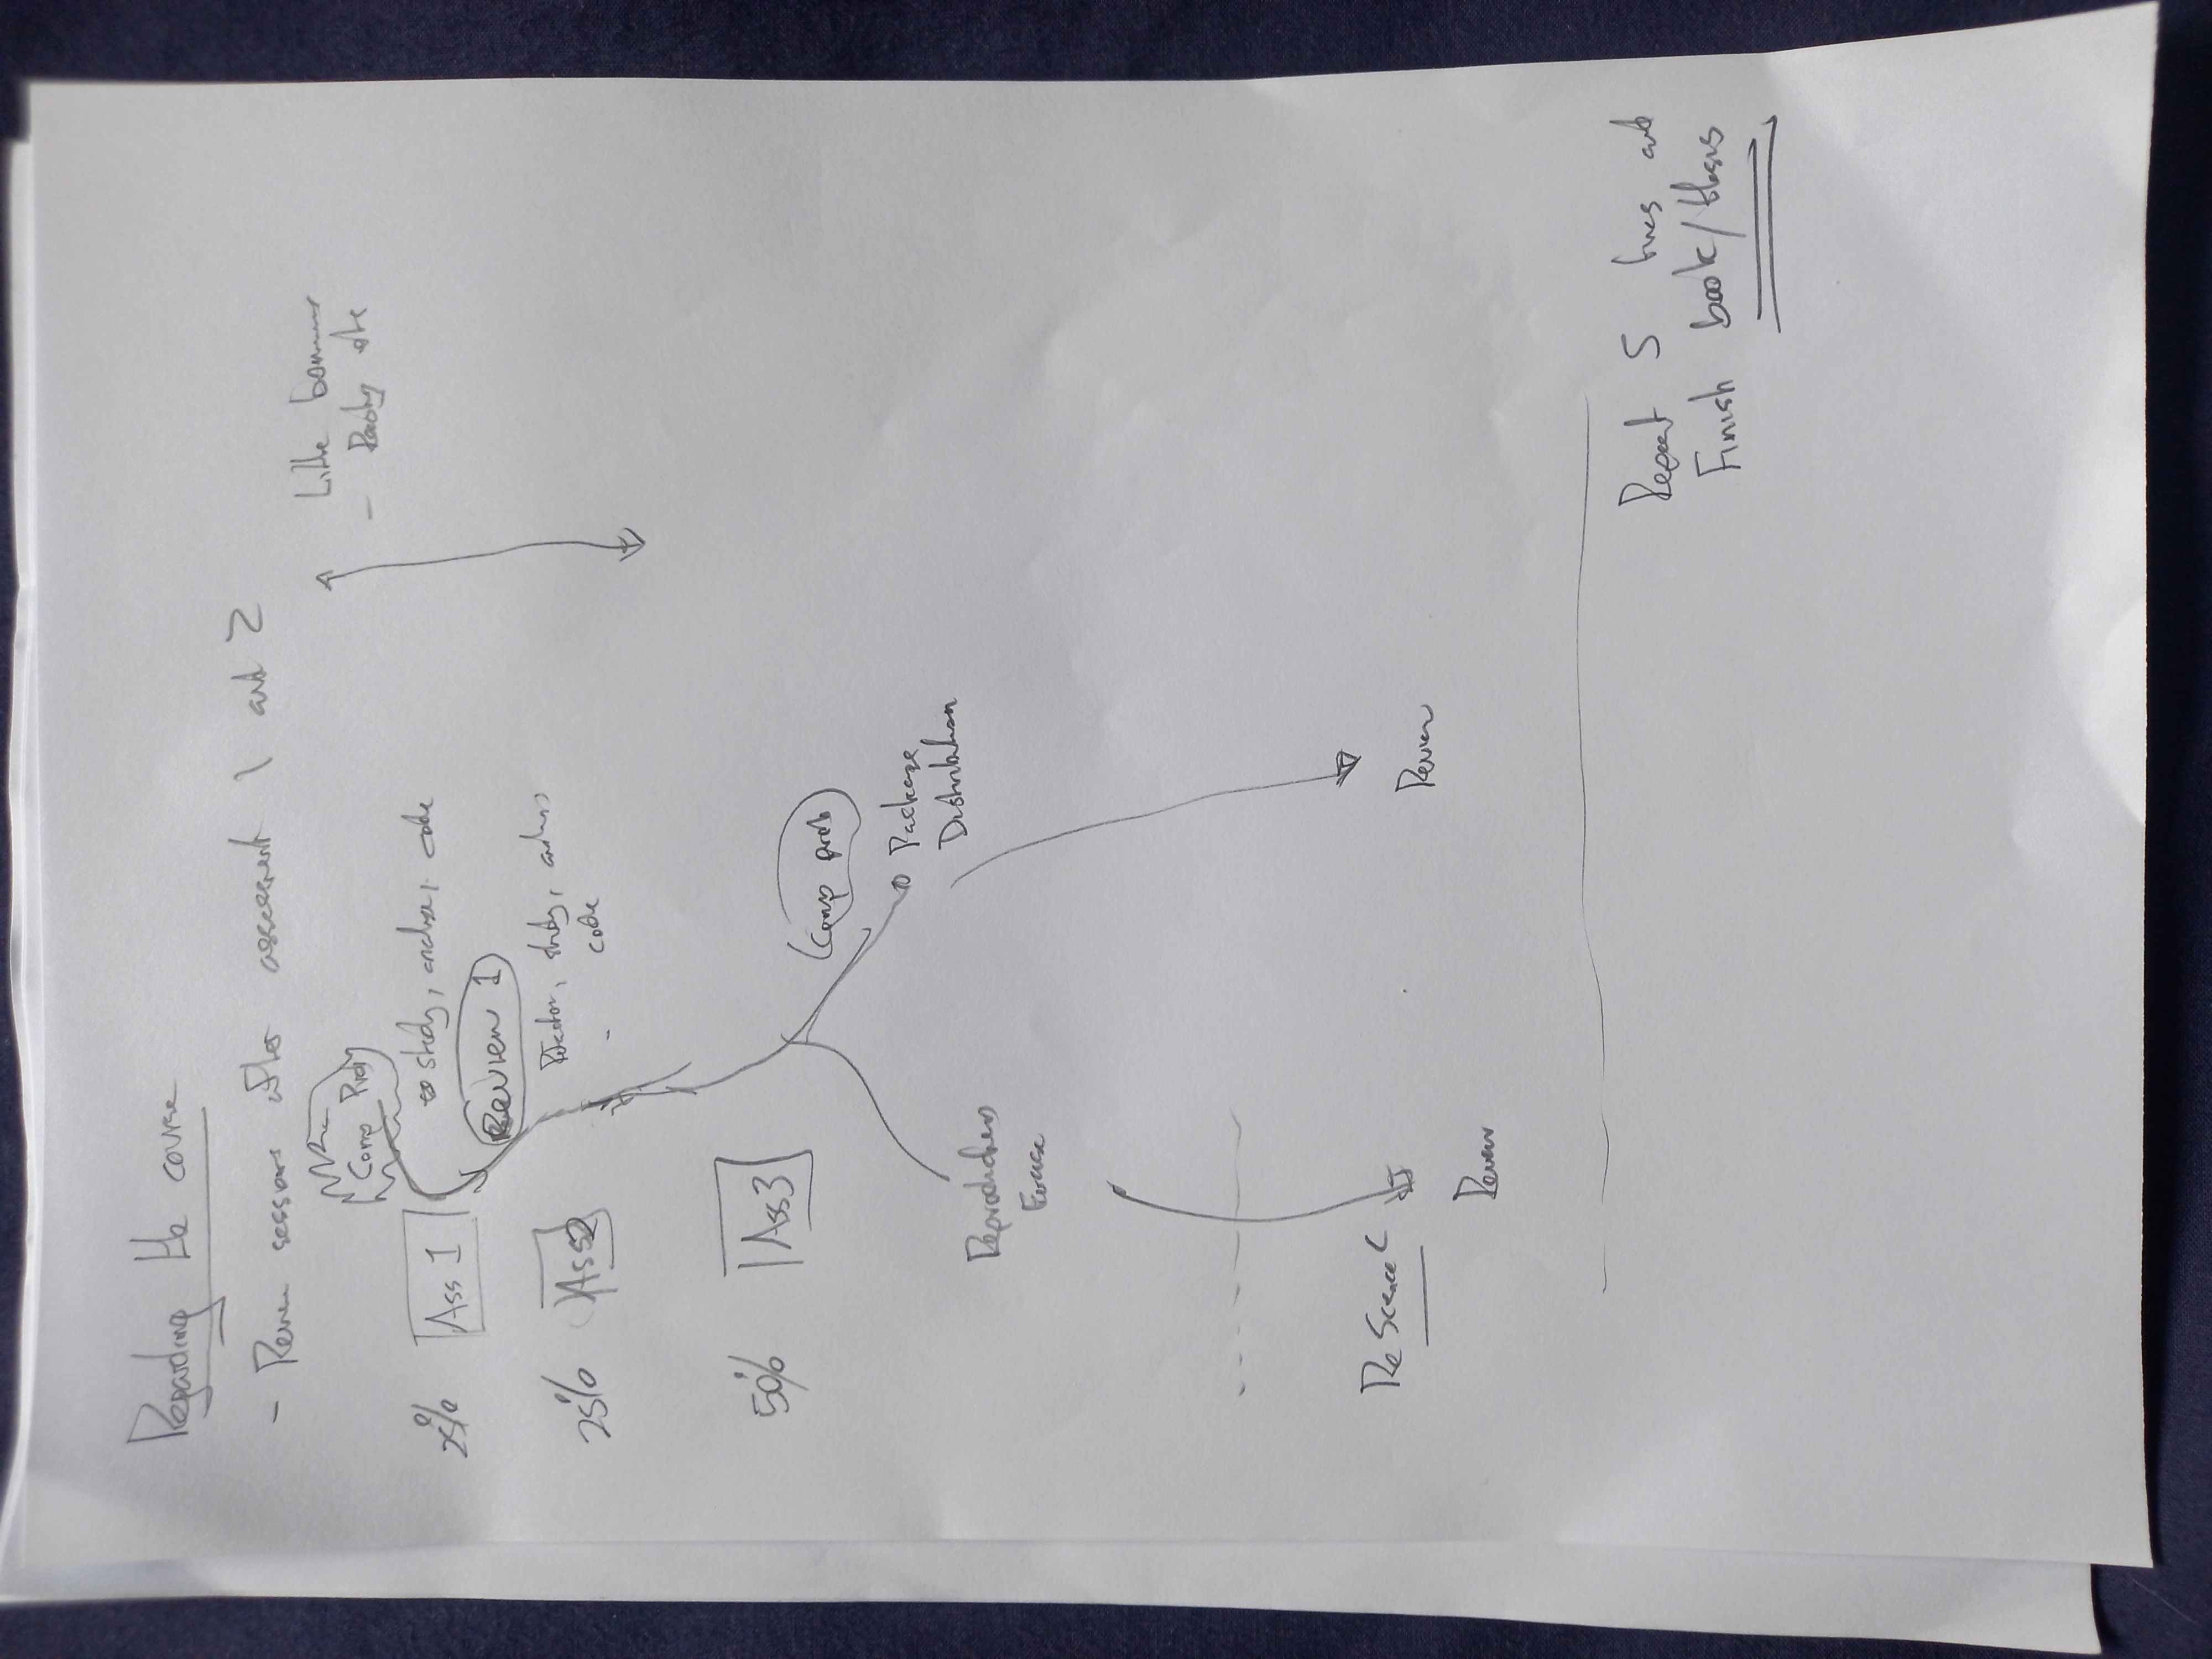 Regarding the course
- Review sessions after assessment 1 and 2
Little bonuses
-
Comp Prob
25% Ass 1
study, analyse, code
Review 1
25% Ass 2
Refactor, study, analyse,
- code
50% Ass 3
Comp prob
Package
Distribution
Reproducibility
Exercise
ReScience C
Review
Review
Repeat 5 times and
Finish book/thesis